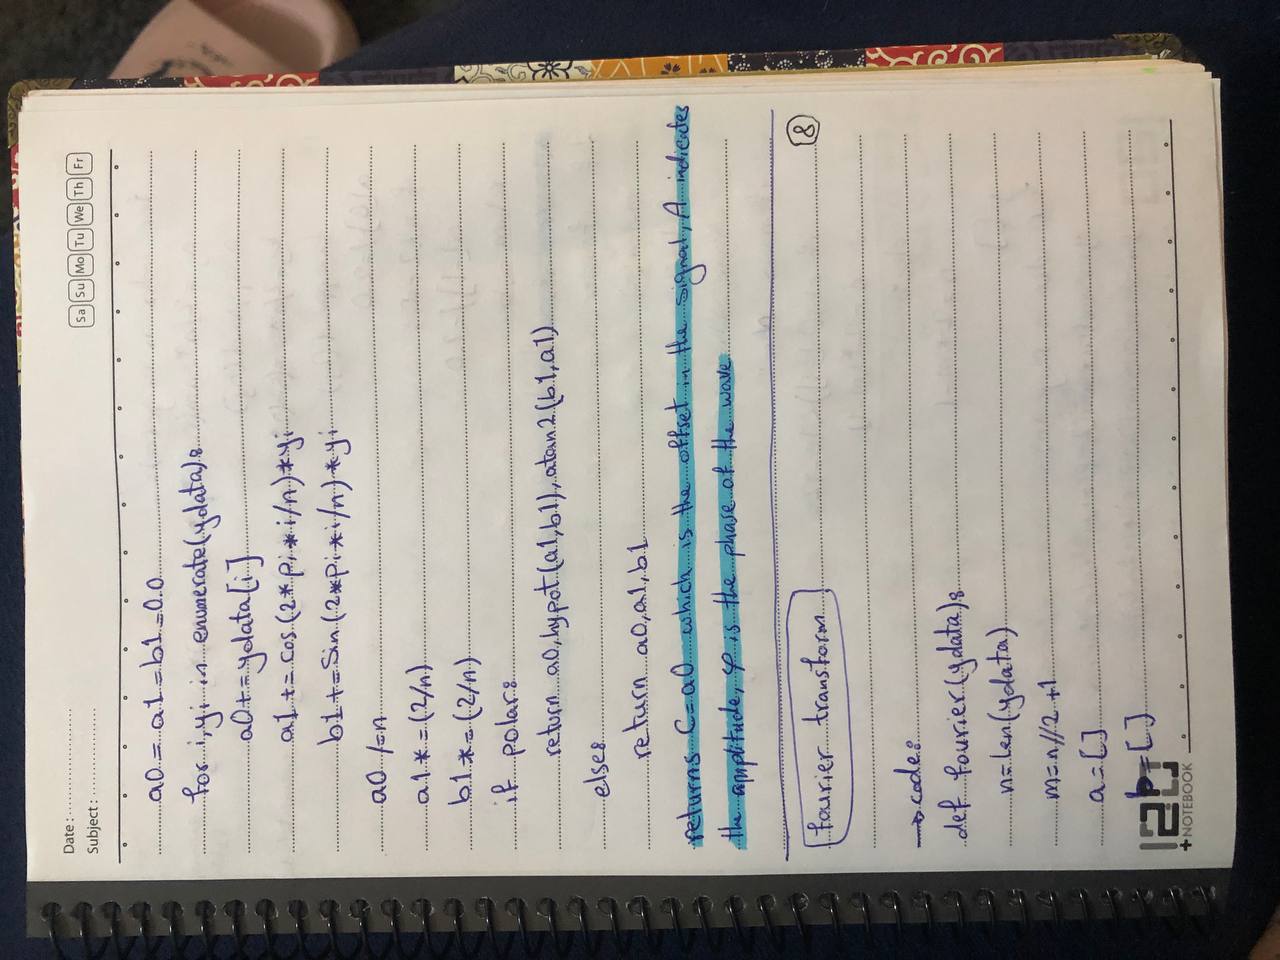 Date :
Subject :
Sa Su Mo Tu We Th Fr
a0 = a1 = b1 = 0.0
for i,yi in enumerate(ydata):
a0 += ydata[i]
a1 += cos(2*pi*i/n)*yi
b1 += sin(2*pi*i/n)*yi
a0 /= n
a1 *= (2/n)
b1 *= (2/n)
if polar:
return a0, hypot(a1,b1), atan2(b1,a1)
else:
return a0,a1,b1
returns C=a0 which is the offset in the signal, A indicates
the amplitude, φ is the phase of the wave
8
fourier transform
→ code:
def fourier(ydata):
n=len(ydata)
m=n//2 +1
a=[]
b=[]
+NOTEBOOK